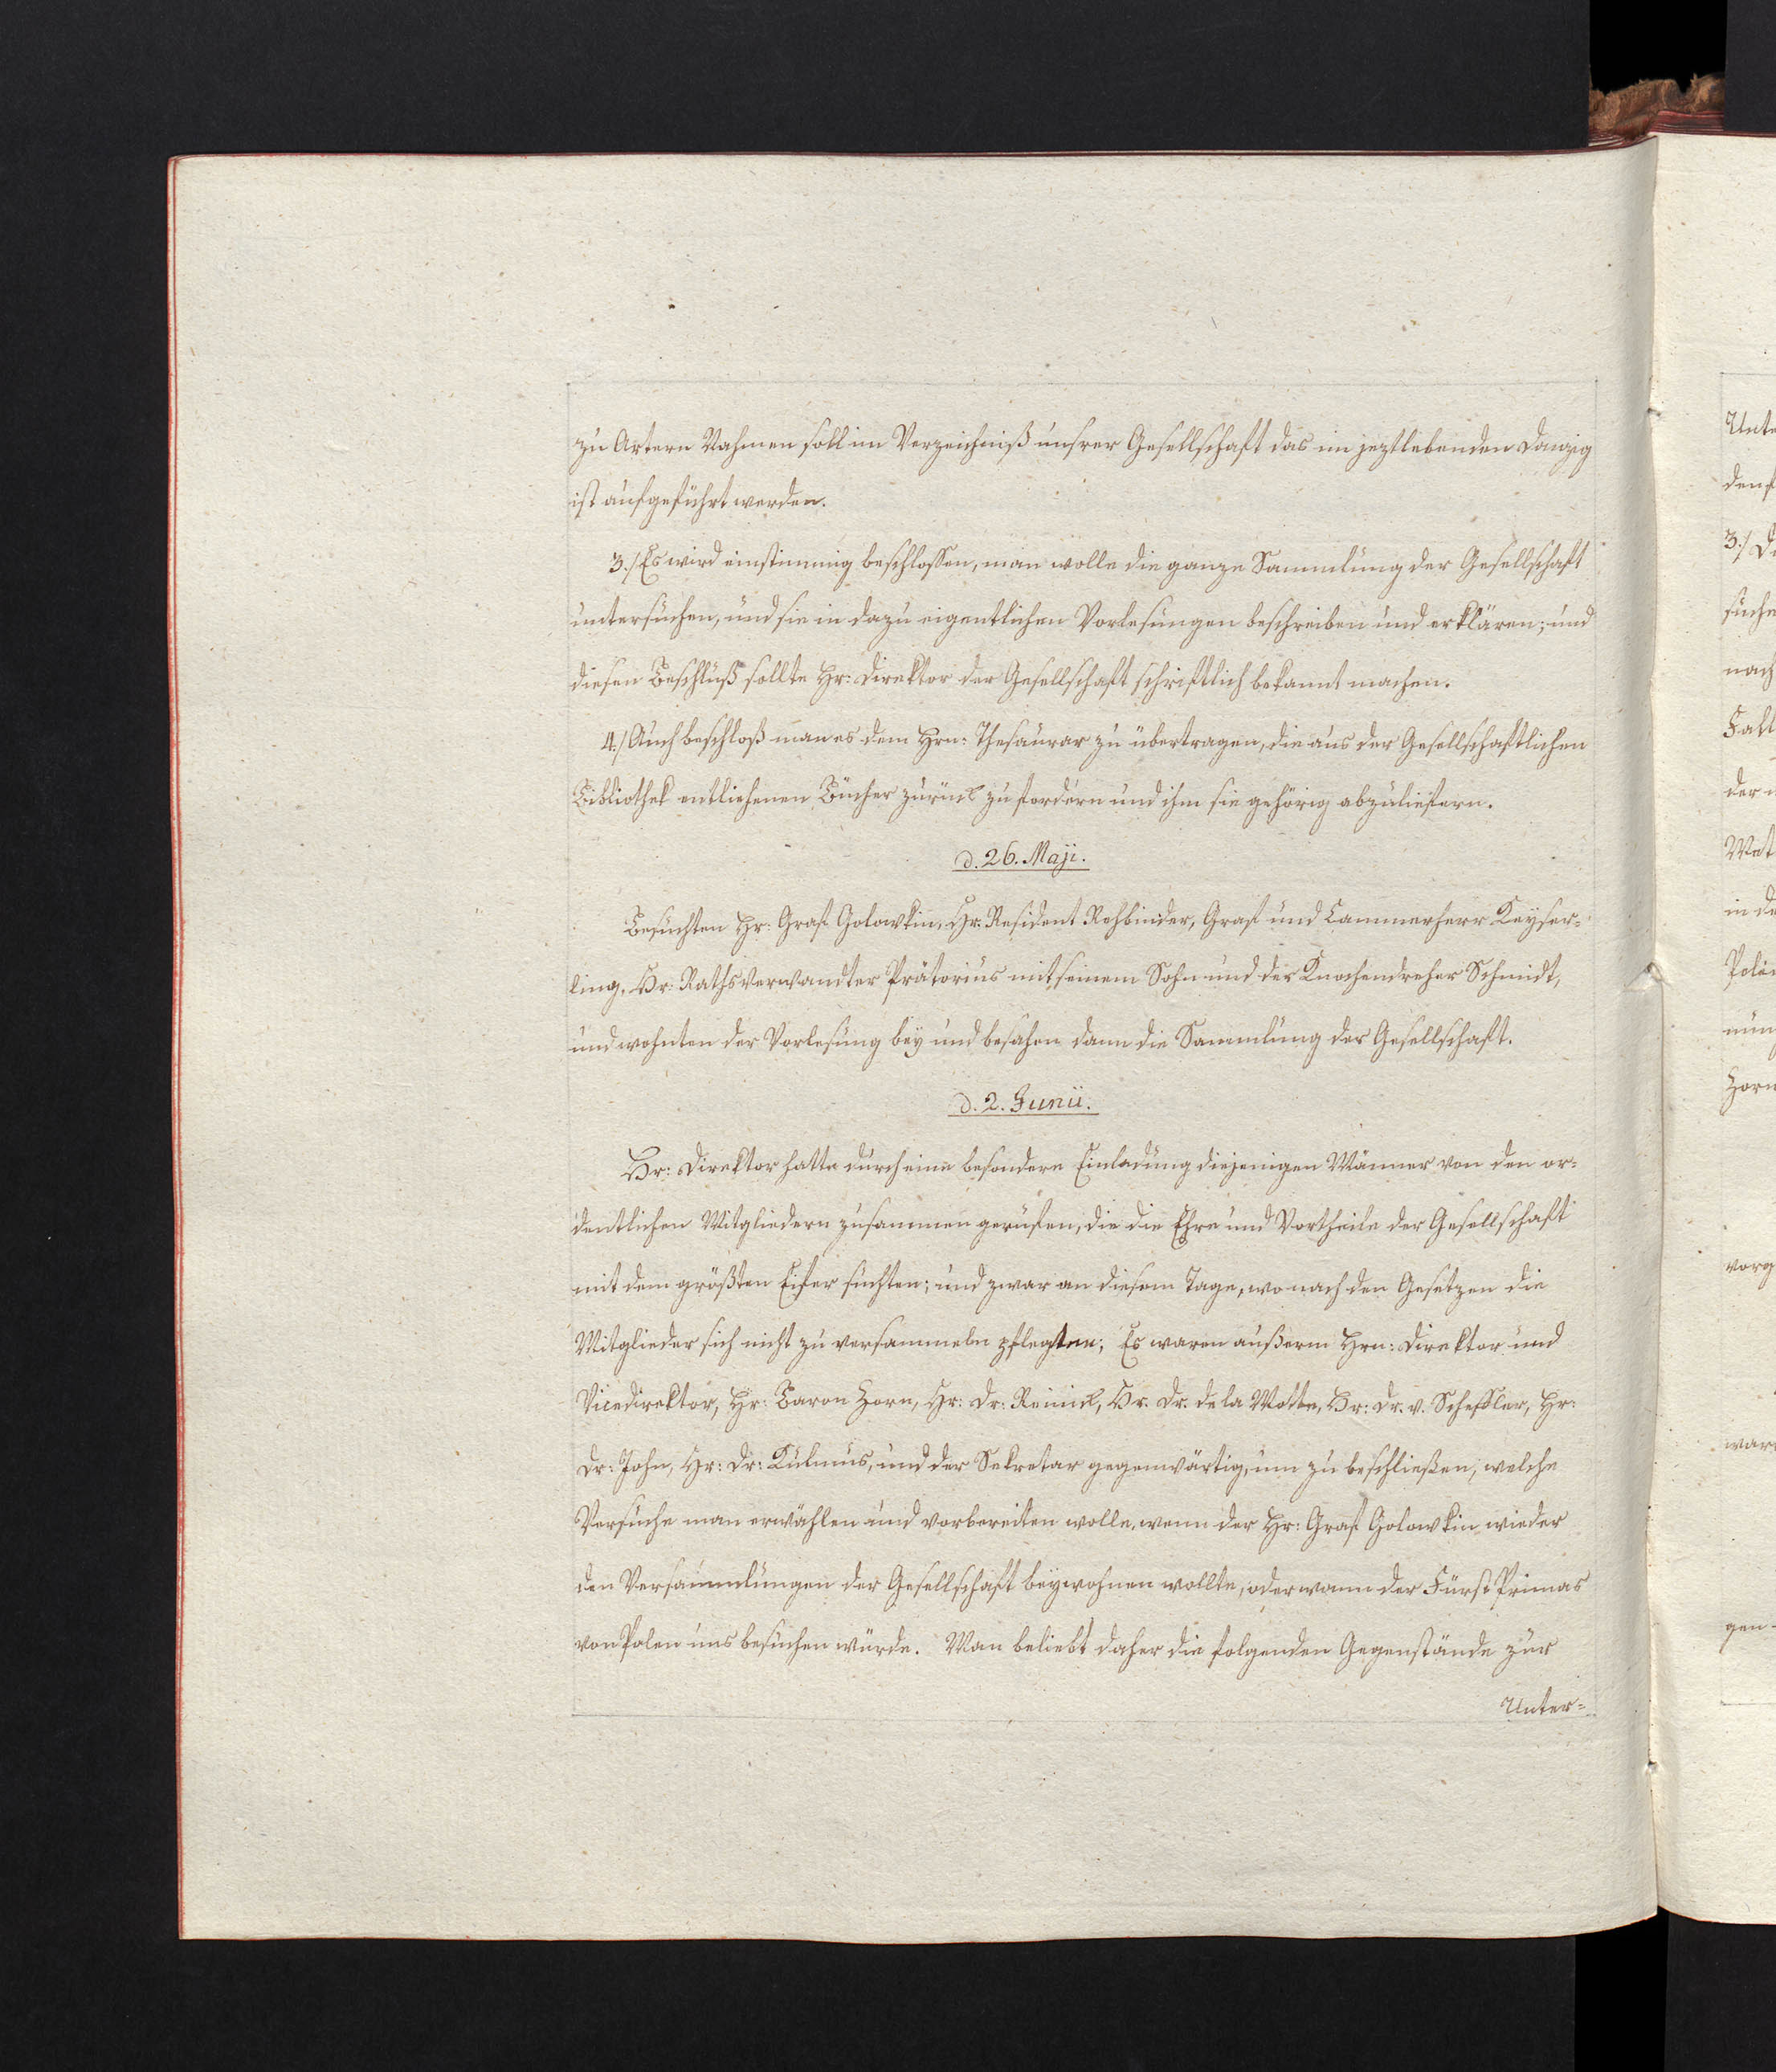 zu Artern Nahmen soll im Verzeichniß unsrer Gesellschaft das im jeztlebenden Danzig
ist aufgeführt werden.
3./ Es wird einstimmig beschlossen, man wolle die ganze Sammlung der Gesellschaft
untersuchen, und sie in dazu eigentlichen Vorlesungen beschreiben und erklären; und
diesen Beschluß sollte Hr: Direktor der Gesellschaft schriftlich bekannt machen.
4./ Auch beschloß man es dem Hrn: Thesaurar zu übertragen, die aus der Gesellschaftlichen
Bibliothek entliehenen Bücher zurück zu fordern und ihm sie gehörig abzuliefern.
d. 26. Maji.
Besuchten Hr: Graf Golowkin, Hr: Resident Rehbinder, Graf und Cammerherr Keyser-
ling, Hr: Rathsverwandter Prätorius mit seinem Sohn und der Knochendreher Schmidt,
und wohnten der Vorlesung bey und besahen dann die Sammlung der Gesellschaft.
d. 2. Junii.
Hr: Direktor hatte durch eine besondere Einladung diejenigen Männer von den or-
dentlichen Mitgliedern zusammen gerufen, die die Ehre und Vortheile der Gesellschaft
mit dem größten Eifer suchten; und zwar an diesem Tage, wo nach den Gesetzen die
Mitglieder sich nicht zu versammeln pflegten; Es waren außerm Hrn: Direktor und
Vicedirektor, Hr: Baron Zorn, Hr: Dr: Reinick, Hr. Dr. de la Motte, Hr: Dr. v. Scheffler, Hr:
Dr: John, Hr: Dr: Kulmus, und der Sekretar gegenwärtig, um zu beschließen, welche
Versuche man erwählen und vorbereiten wolle, wenn der Hr: Graf Golowkin wieder
den Versammlungen der Gesellschaft beywohnen wollte, oder wann der Fürst Primas
von Polen uns besuchen würde. Man beliebt daher die folgenden Gegenstände zur
Unter-